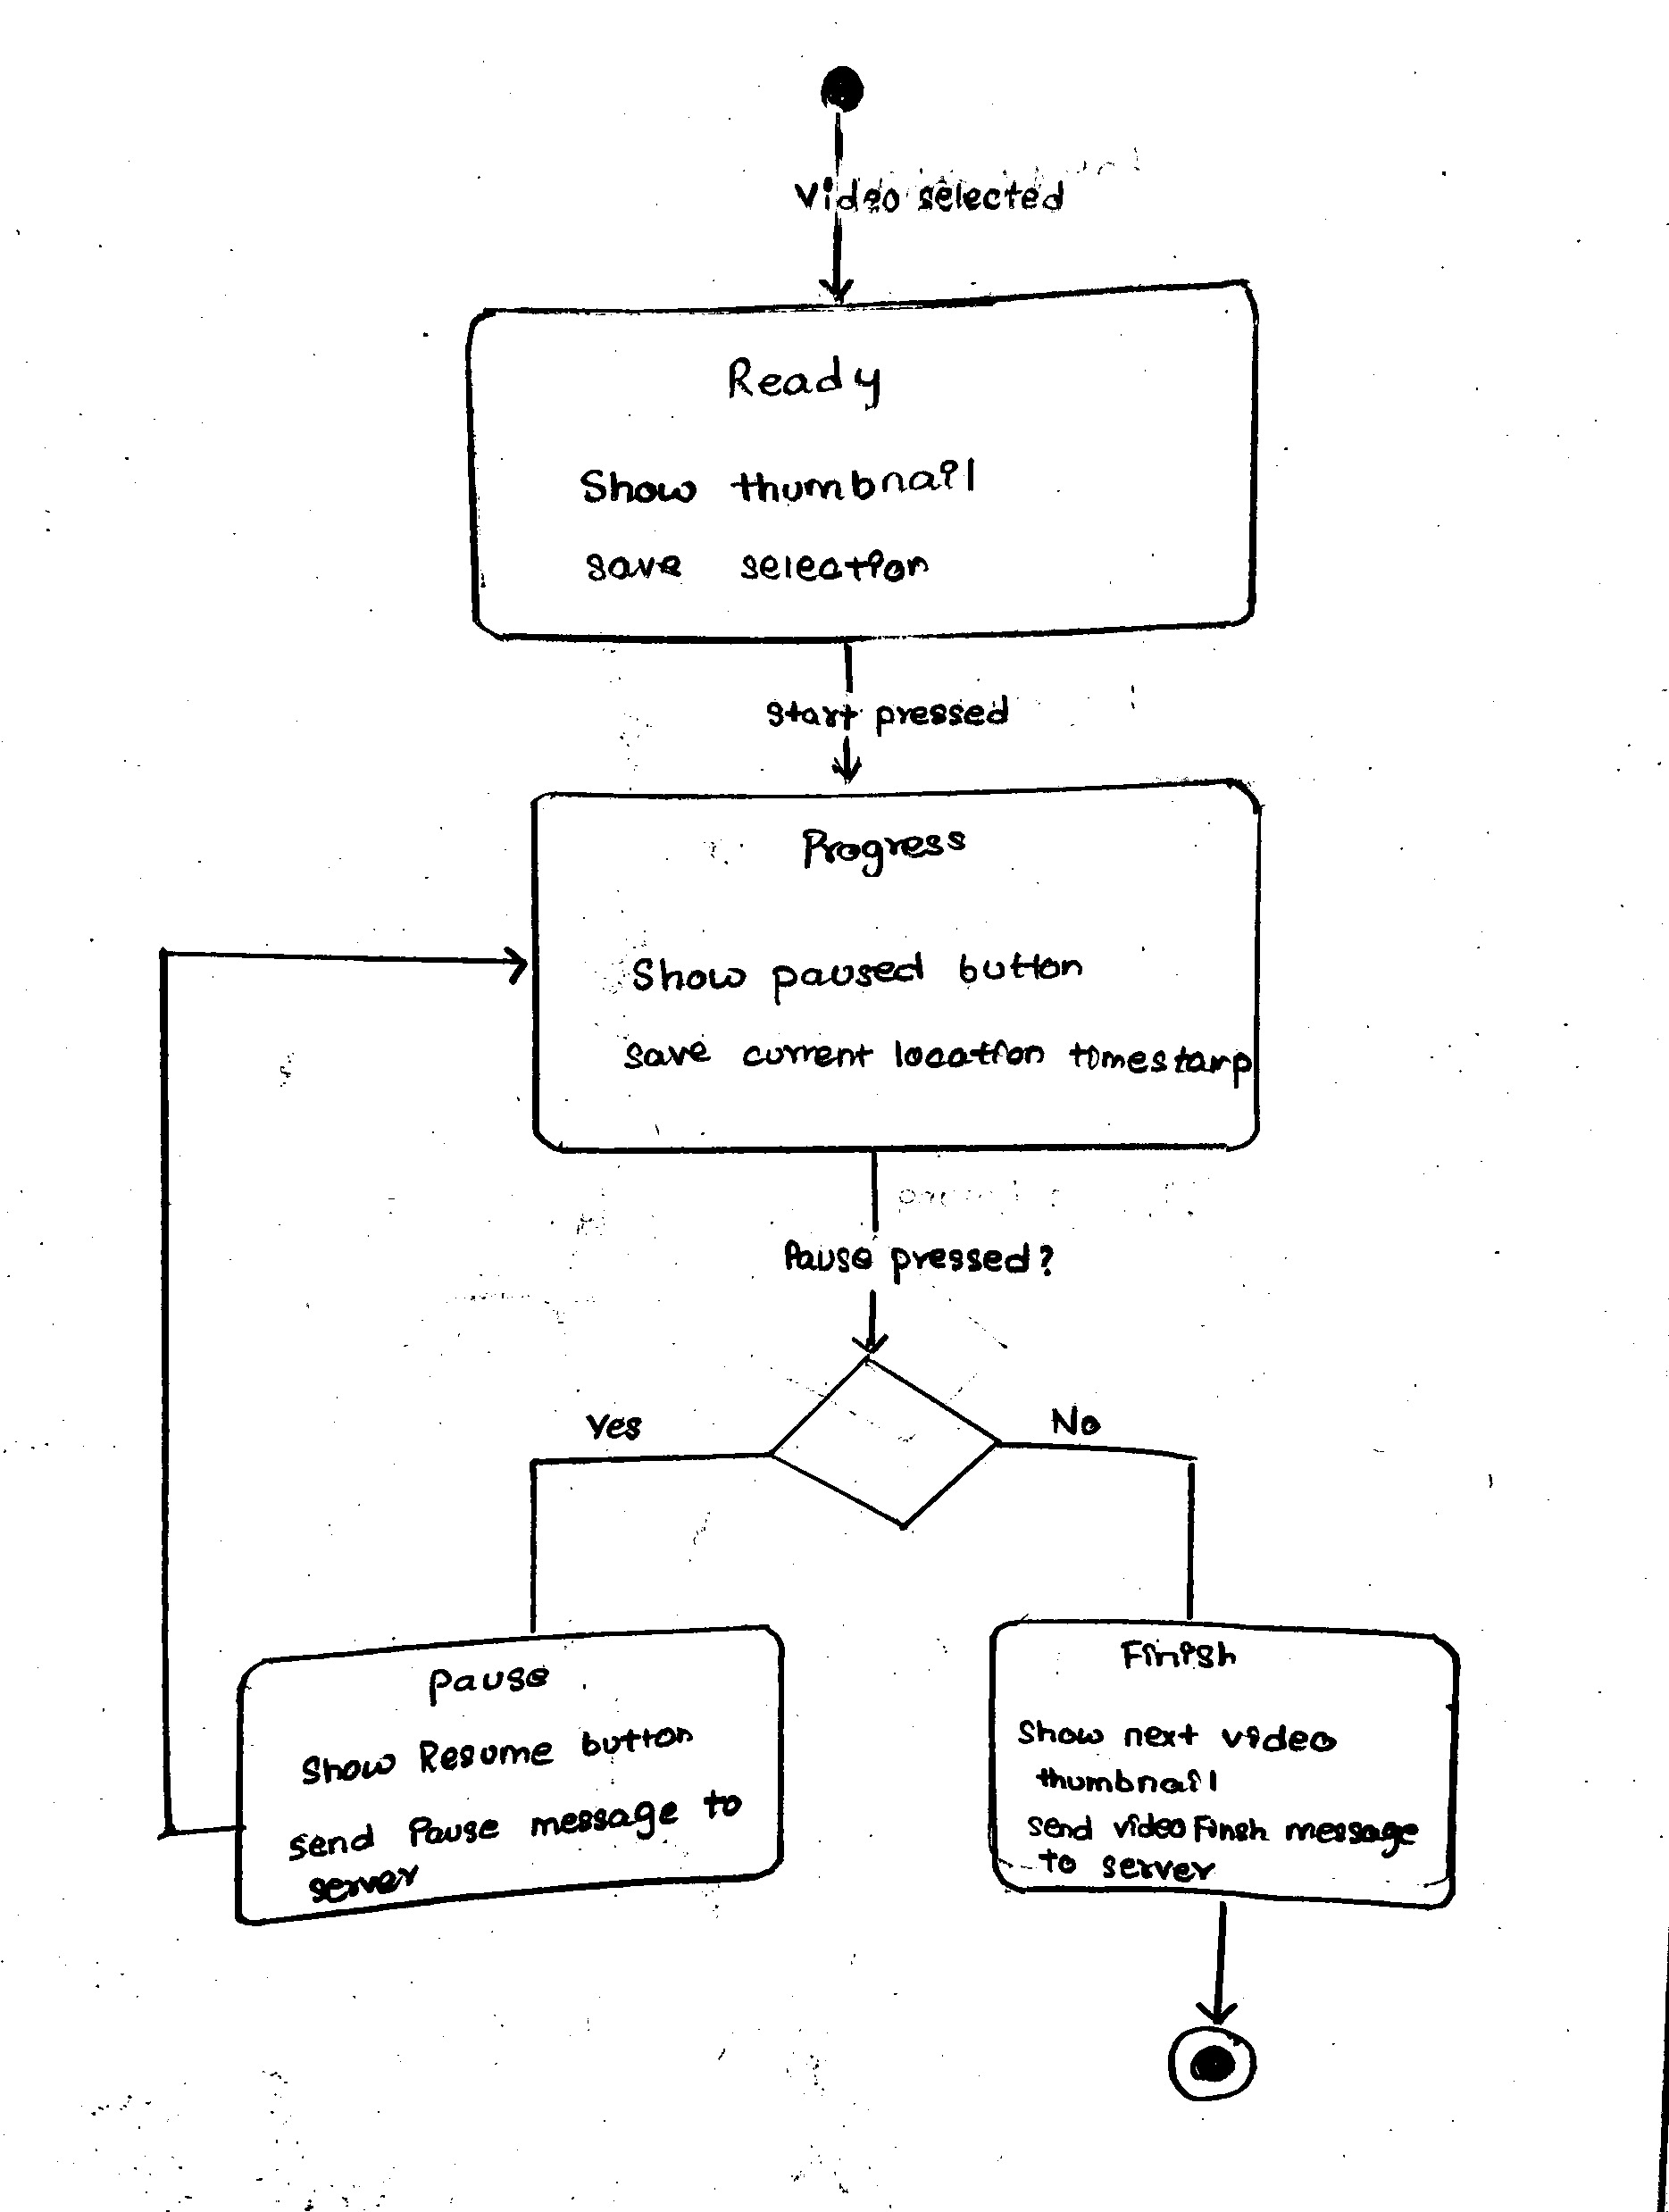 Video selected
Ready
Show thumbnail
save selection
Start pressed
Progress
Show paused button
save current location timestamp
Pause pressed?
Yes
No
Pause
Show Resume button
send Pause message to
server
Finish
Show next video
thumbnail
send video Finsh message
to server